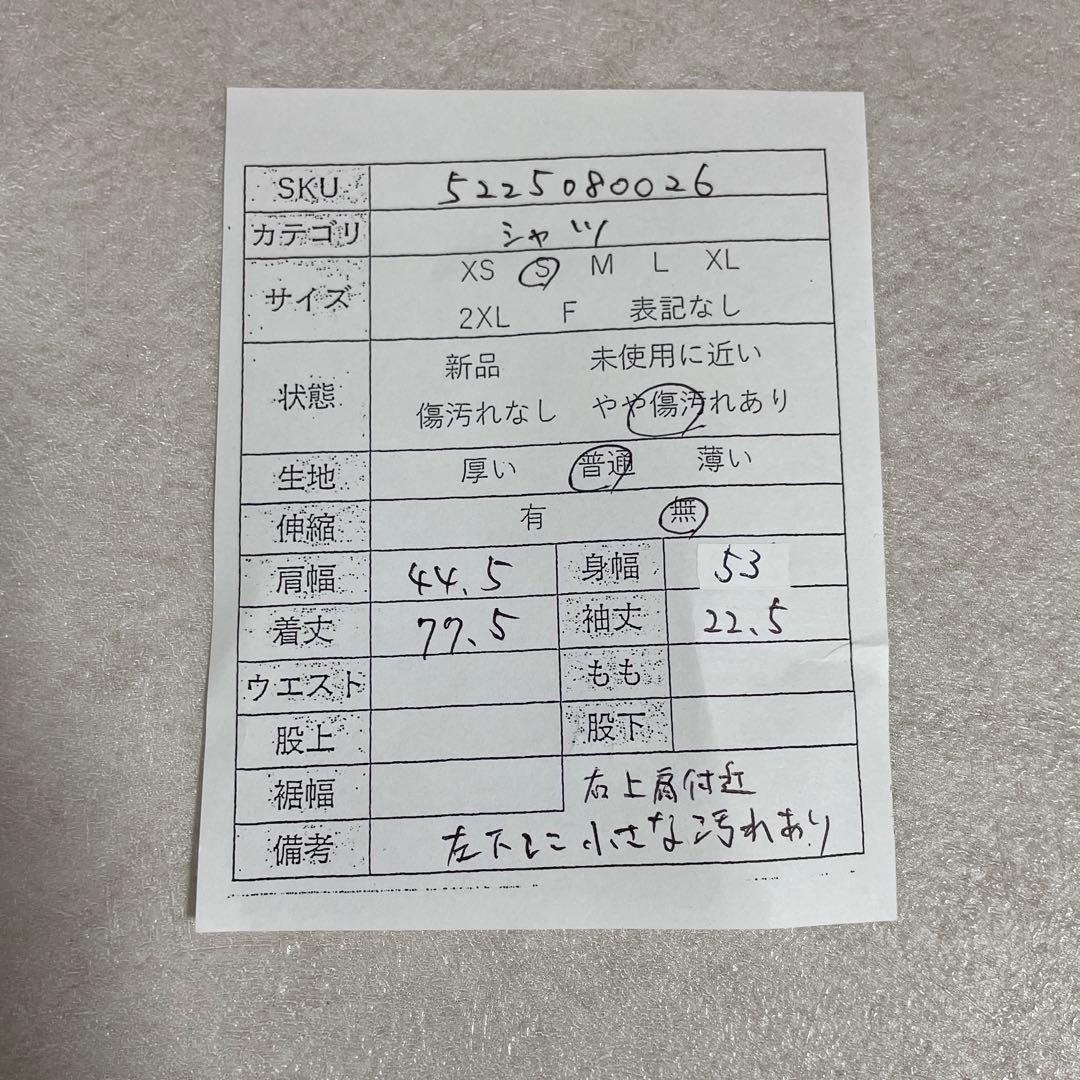 SKU 5225080026
カテゴリ シャツ
サイズ XS S M L XL
2XL F 表記なし
状態 新品 未使用に近い
傷汚れなし やや傷汚れあり
生地 厚い 普通 薄い
伸縮 有 無
肩幅 44.5 身幅 53
着丈 77.5 袖丈 22.5
ウエスト もも
股上 股下
裾幅 右上肩付近
備考 左下に小さな汚れあり